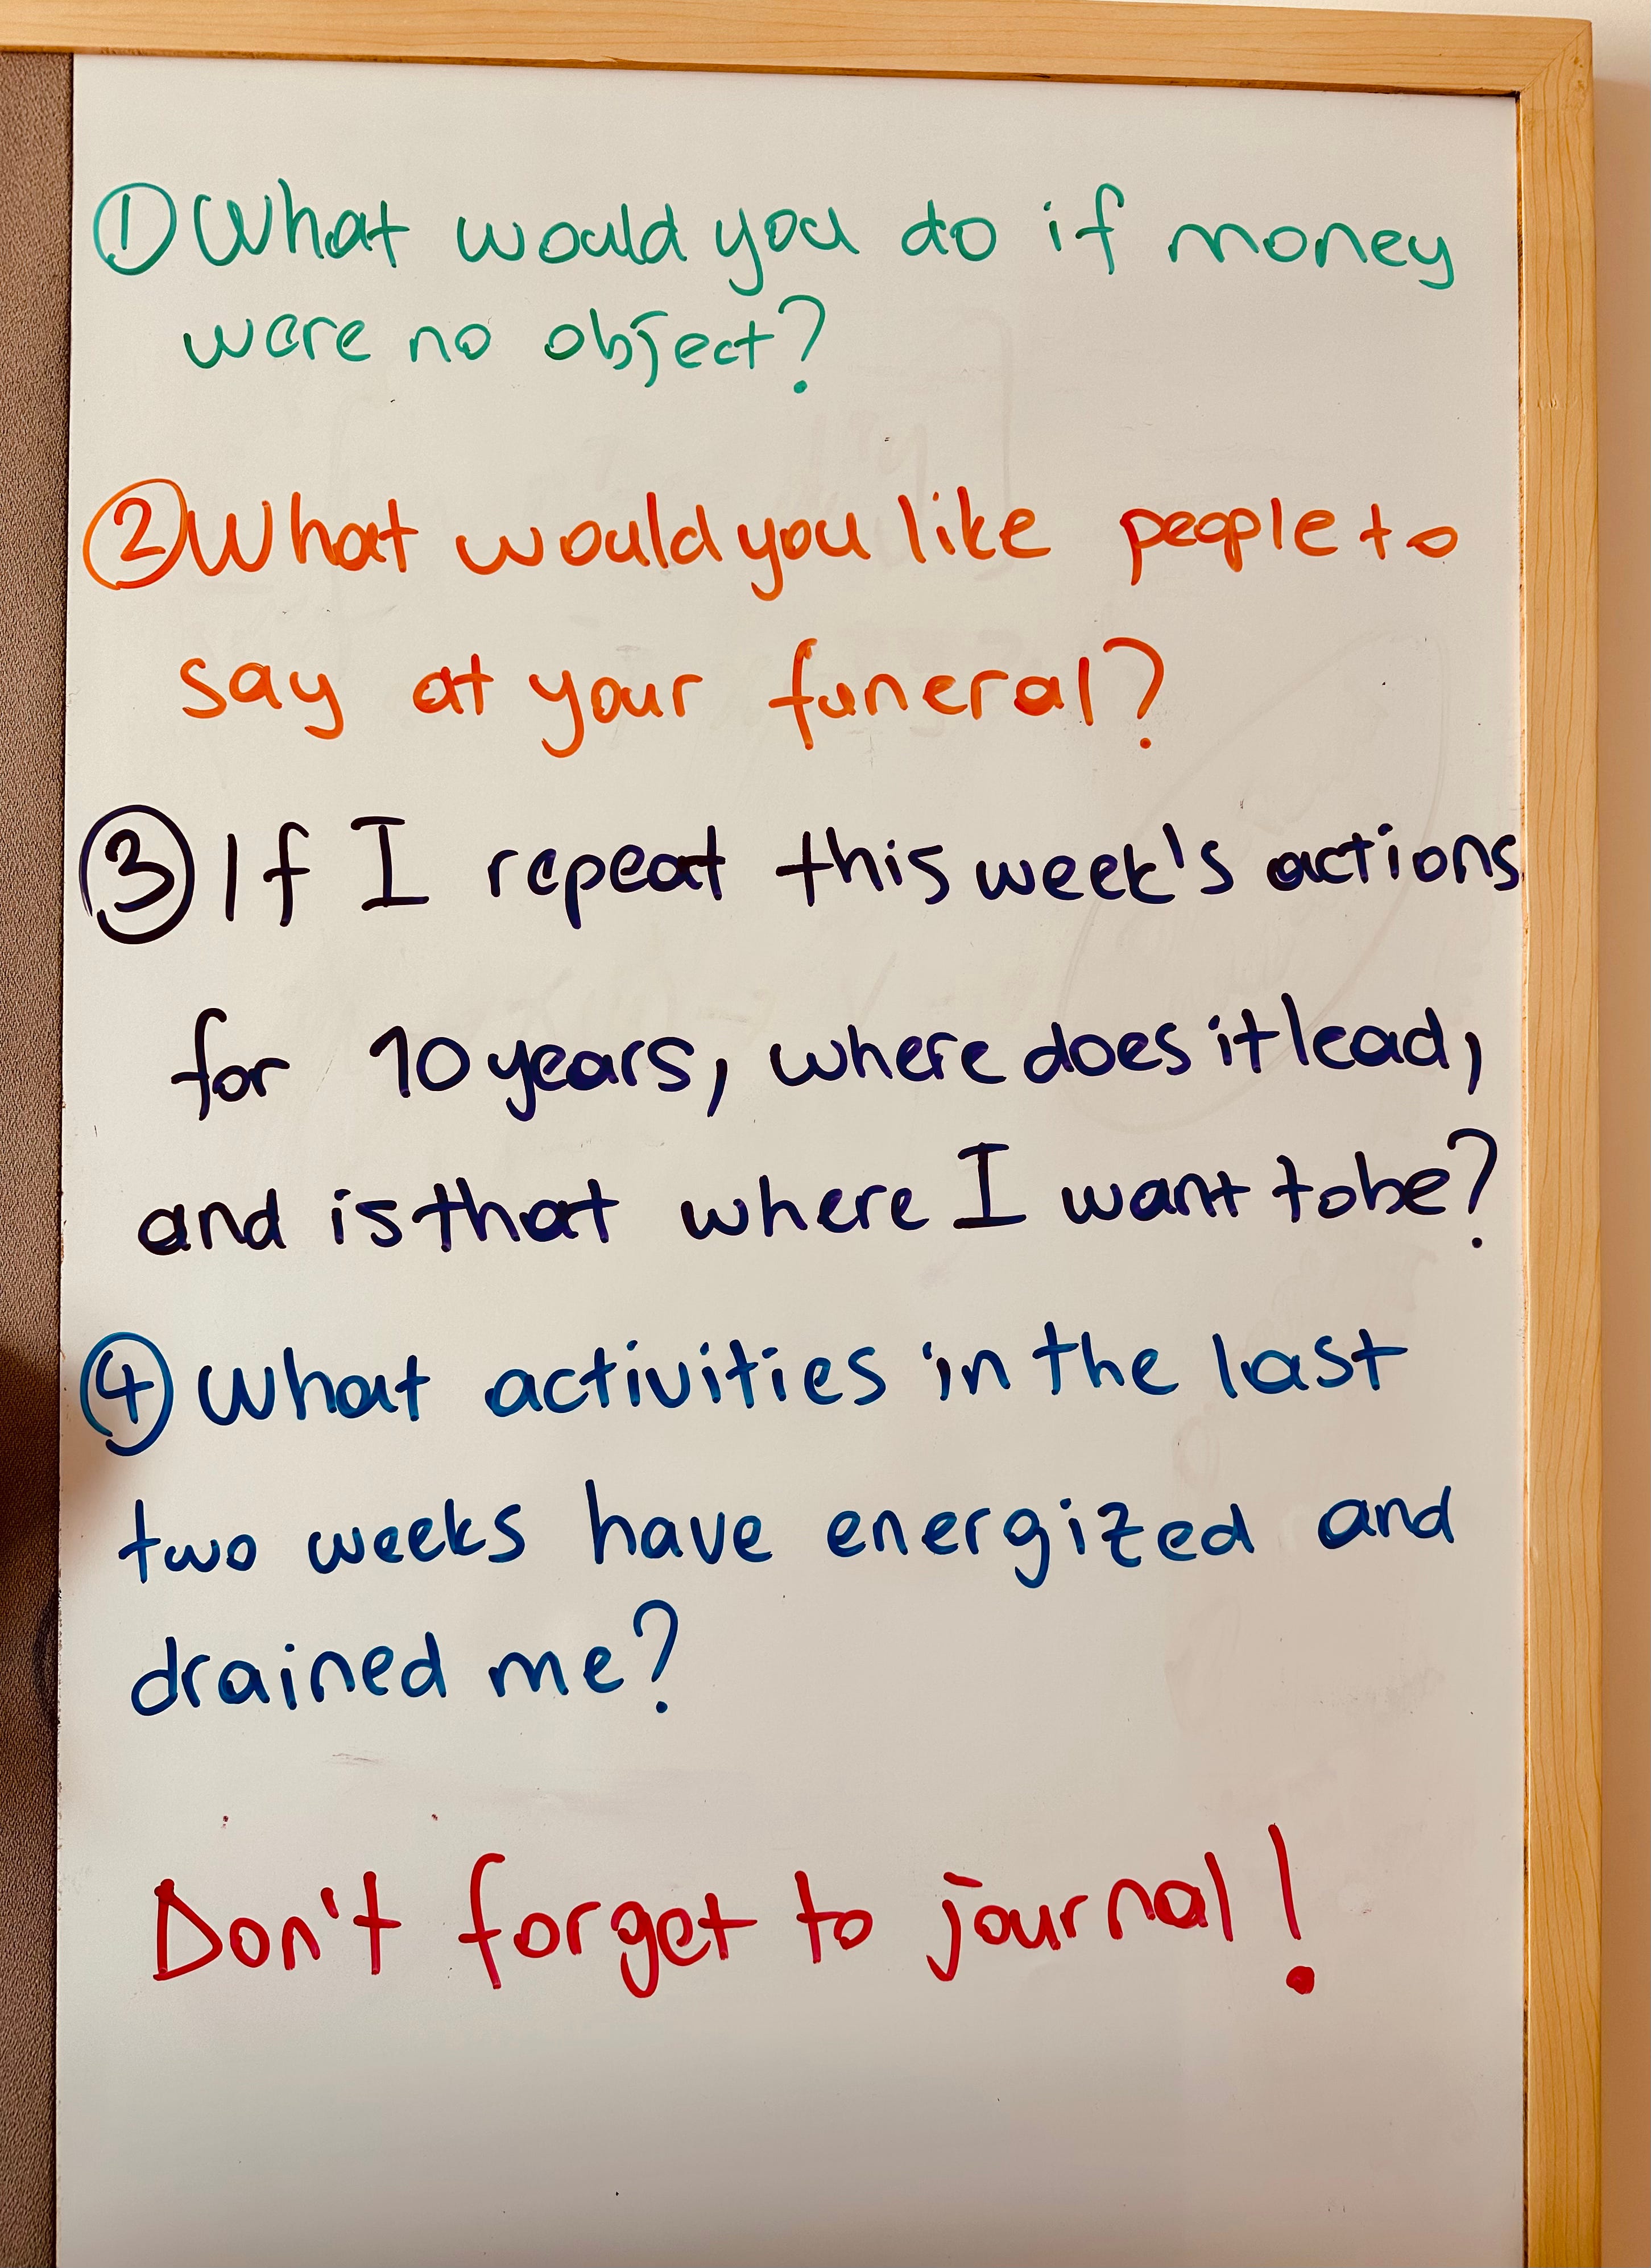 ① What would you do if money
were no object?
② What would you like people to
say at your funeral?
③ If I repeat this week's actions
for 10 years, where does it lead,
and is that where I want to be?
④ What activities in the last
two weeks have energized and
drained me?
Don't forget to journal!